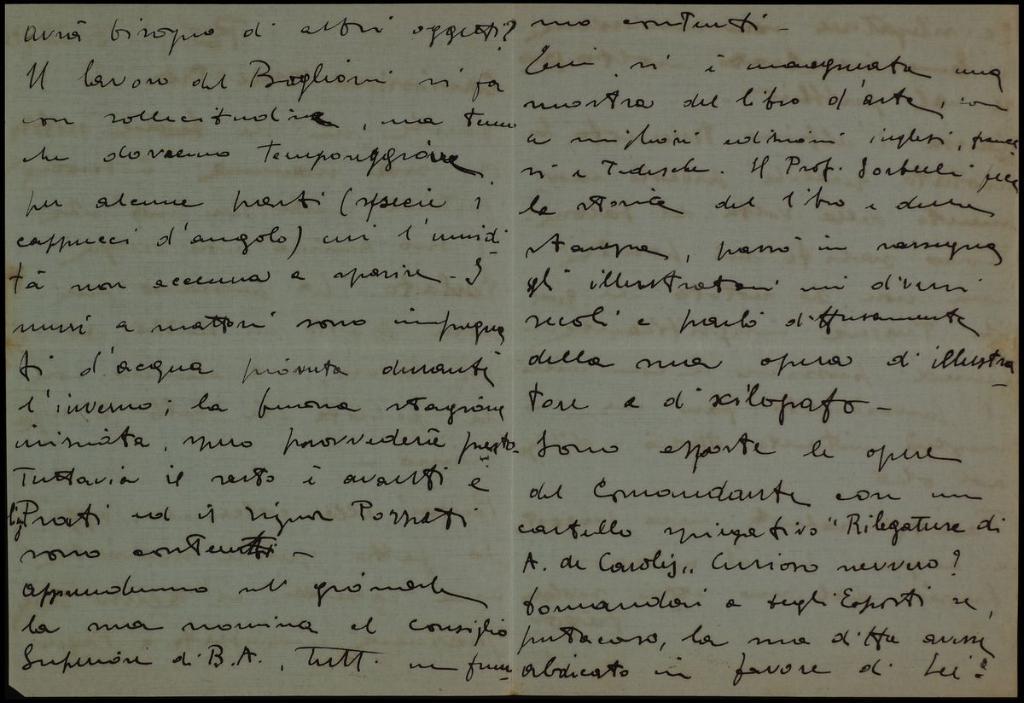 avrà bisogno di altri oggetti?
Il lavoro del Baglioni si fa
con sollecitudine, ma temo
che dovremo temporeggiare
per alcune parti (specie i
cappucci d'angolo) cui l'umidi
tà non accenna a sparire - I
muri a mattoni sono impregna
ti d'acqua piovuta durante
l'inverno; la buona stagione
iniziata, spero provvederà presto.
Tuttavia il resto è avanti e
Prati ed il signor Pozzati
sono contenti -
Apprendemmo nel giornale
la sua nomina al consiglio
Superiore di B.A., Tutti ne fum
mo contenti -
Ieri si è inaugurata una
mostra del libro d'arte, con
migliori edizioni inglesi, france
si e Tedesche. Il Prof. Sorbelli fece
la storia del libro e della
stampa, passò in rassegna
gli illustratori nei diversi
secoli e parlò diffusamente
della sua opera di illustra
tore e di xilografo -
Sono esposte le opere
del Comandante con un
cartello spiegativo "Rilegature di
A. de Carolis„ Curioso nevvero?
Domandai a degli Esposti se,
putacaso, la sua ditta avesse
abdicato in favore di Lei?